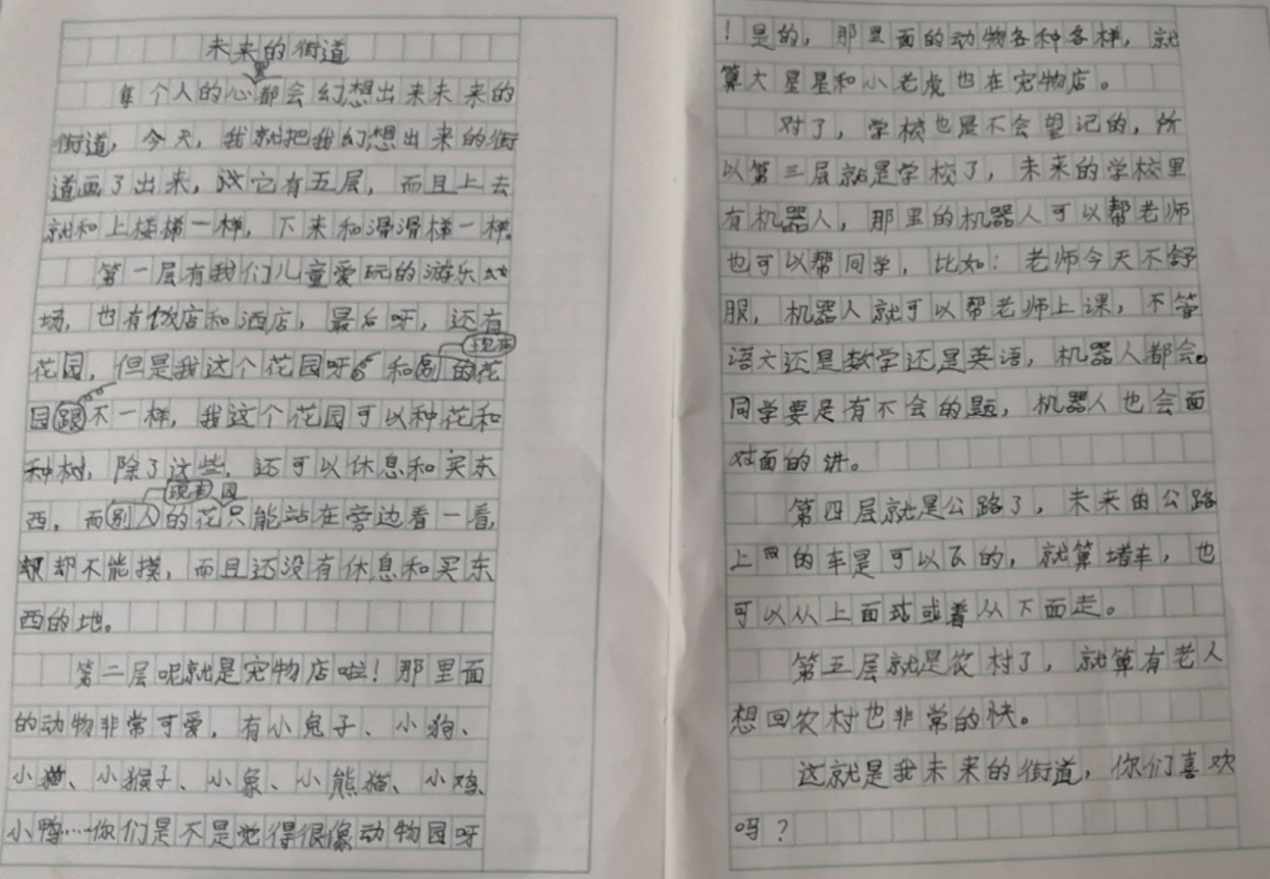 未来的街道
每个人的心里都会幻想出来未来的
街道，今天，我就把我幻想出来的街
道画了出来，它有五层，而且上去
就和上楼梯一样，下来和滑滑梯一样。
第一层有我们儿童爱玩的游乐
场，也有饭店和酒店，最后呀，还有
花园，但是我这个花园呀，跟现在的花
园不一样，我这个花园可以种花和
种树，除了这些，还可以休息和买东
西，而现在的花园只能站在旁边看一看，
却不能摸，而且还没有休息和买东
西的地。
第二层呢就是宠物店啦！那里面
的动物非常可爱，有小兔子、小狗、
小猫、小猴子、小象、小熊猫、小鸡、
小鸭……你们是不是觉得很像动物园呀
！是的，那里面的动物各种各样，就
算大星星和小老虎也在宠物店。
对了，学校也是不会望记的，所
以第三层就是学校了，未来的学校里
有机器人，那里的机器人可以帮老师
也可以帮同学，比如：老师今天不舒
服，机器人就可以帮老师上课，不管
语文还是数学还是英语，机器人都会。
同学要是有不会的题，机器人也会面
对面的讲。
第四层就是公路了，未来的公路
上的车是可以飞的，就算堵车，也
可以从上面或着从下面走。
第五层就是农村了，就算有老人
想回农村也非常的快。
这就是我未来的街道，你们喜欢
吗？